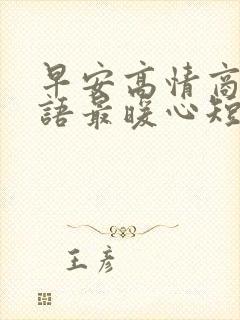 早安高情商
語最暖心短
王彥